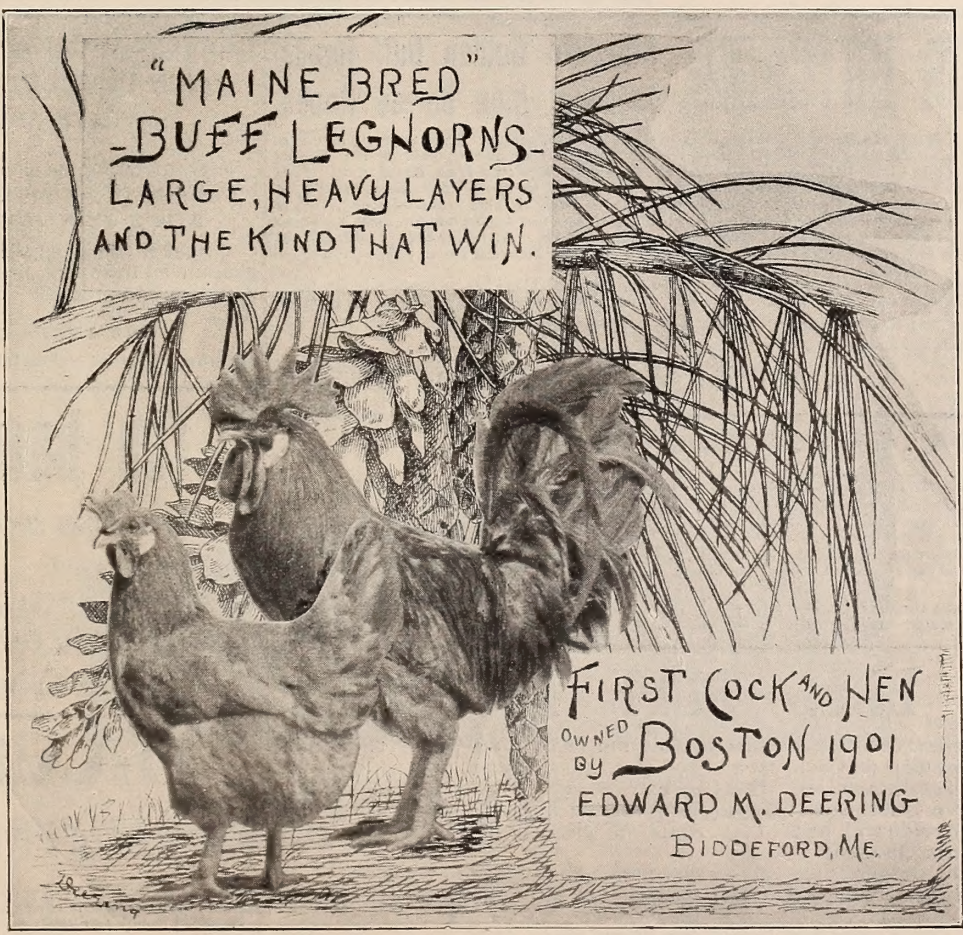 "MAINE BRED"
-BUFF LEGHORNS-
LARGE, HEAVY LAYERS
AND THE KIND THAT WIN.
FIRST COCK AND HEN
OWNED BY BOSTON 1901
EDWARD M. DEERING
BIDDEFORD, ME.
Deering